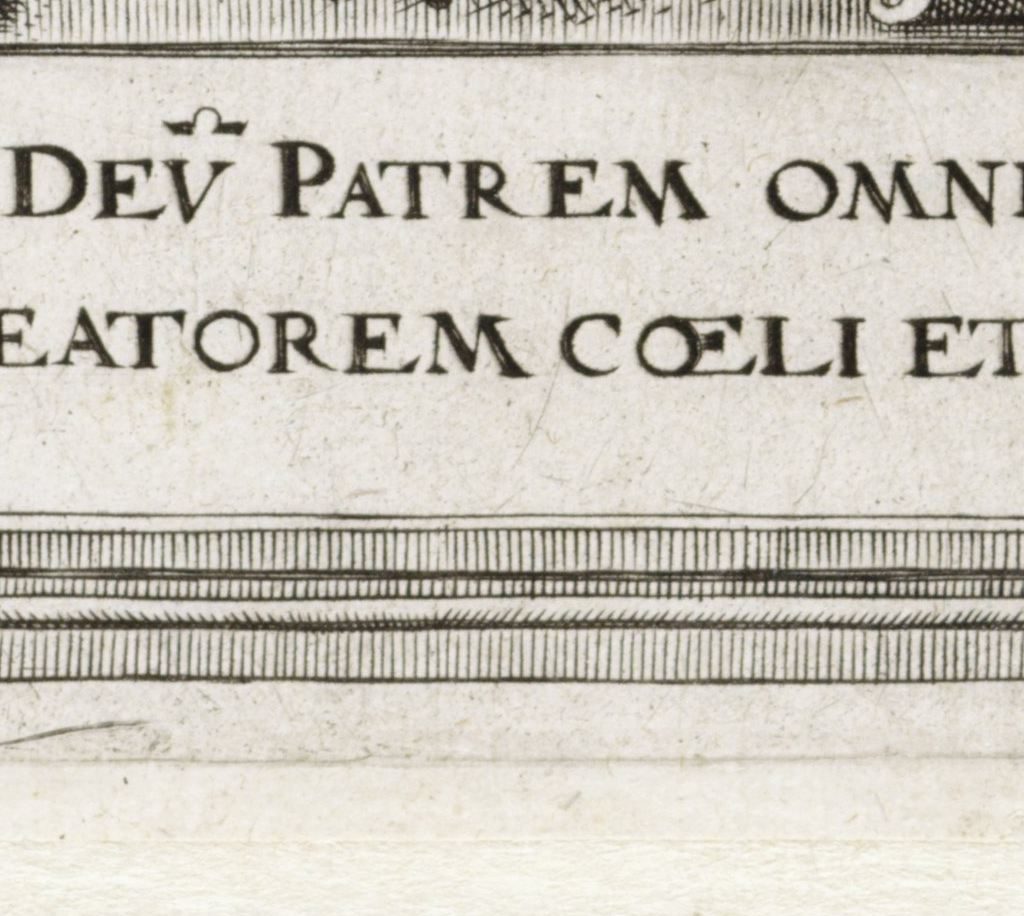 DEV̄ PATREM OMNI
EATOREM CŒLI ET